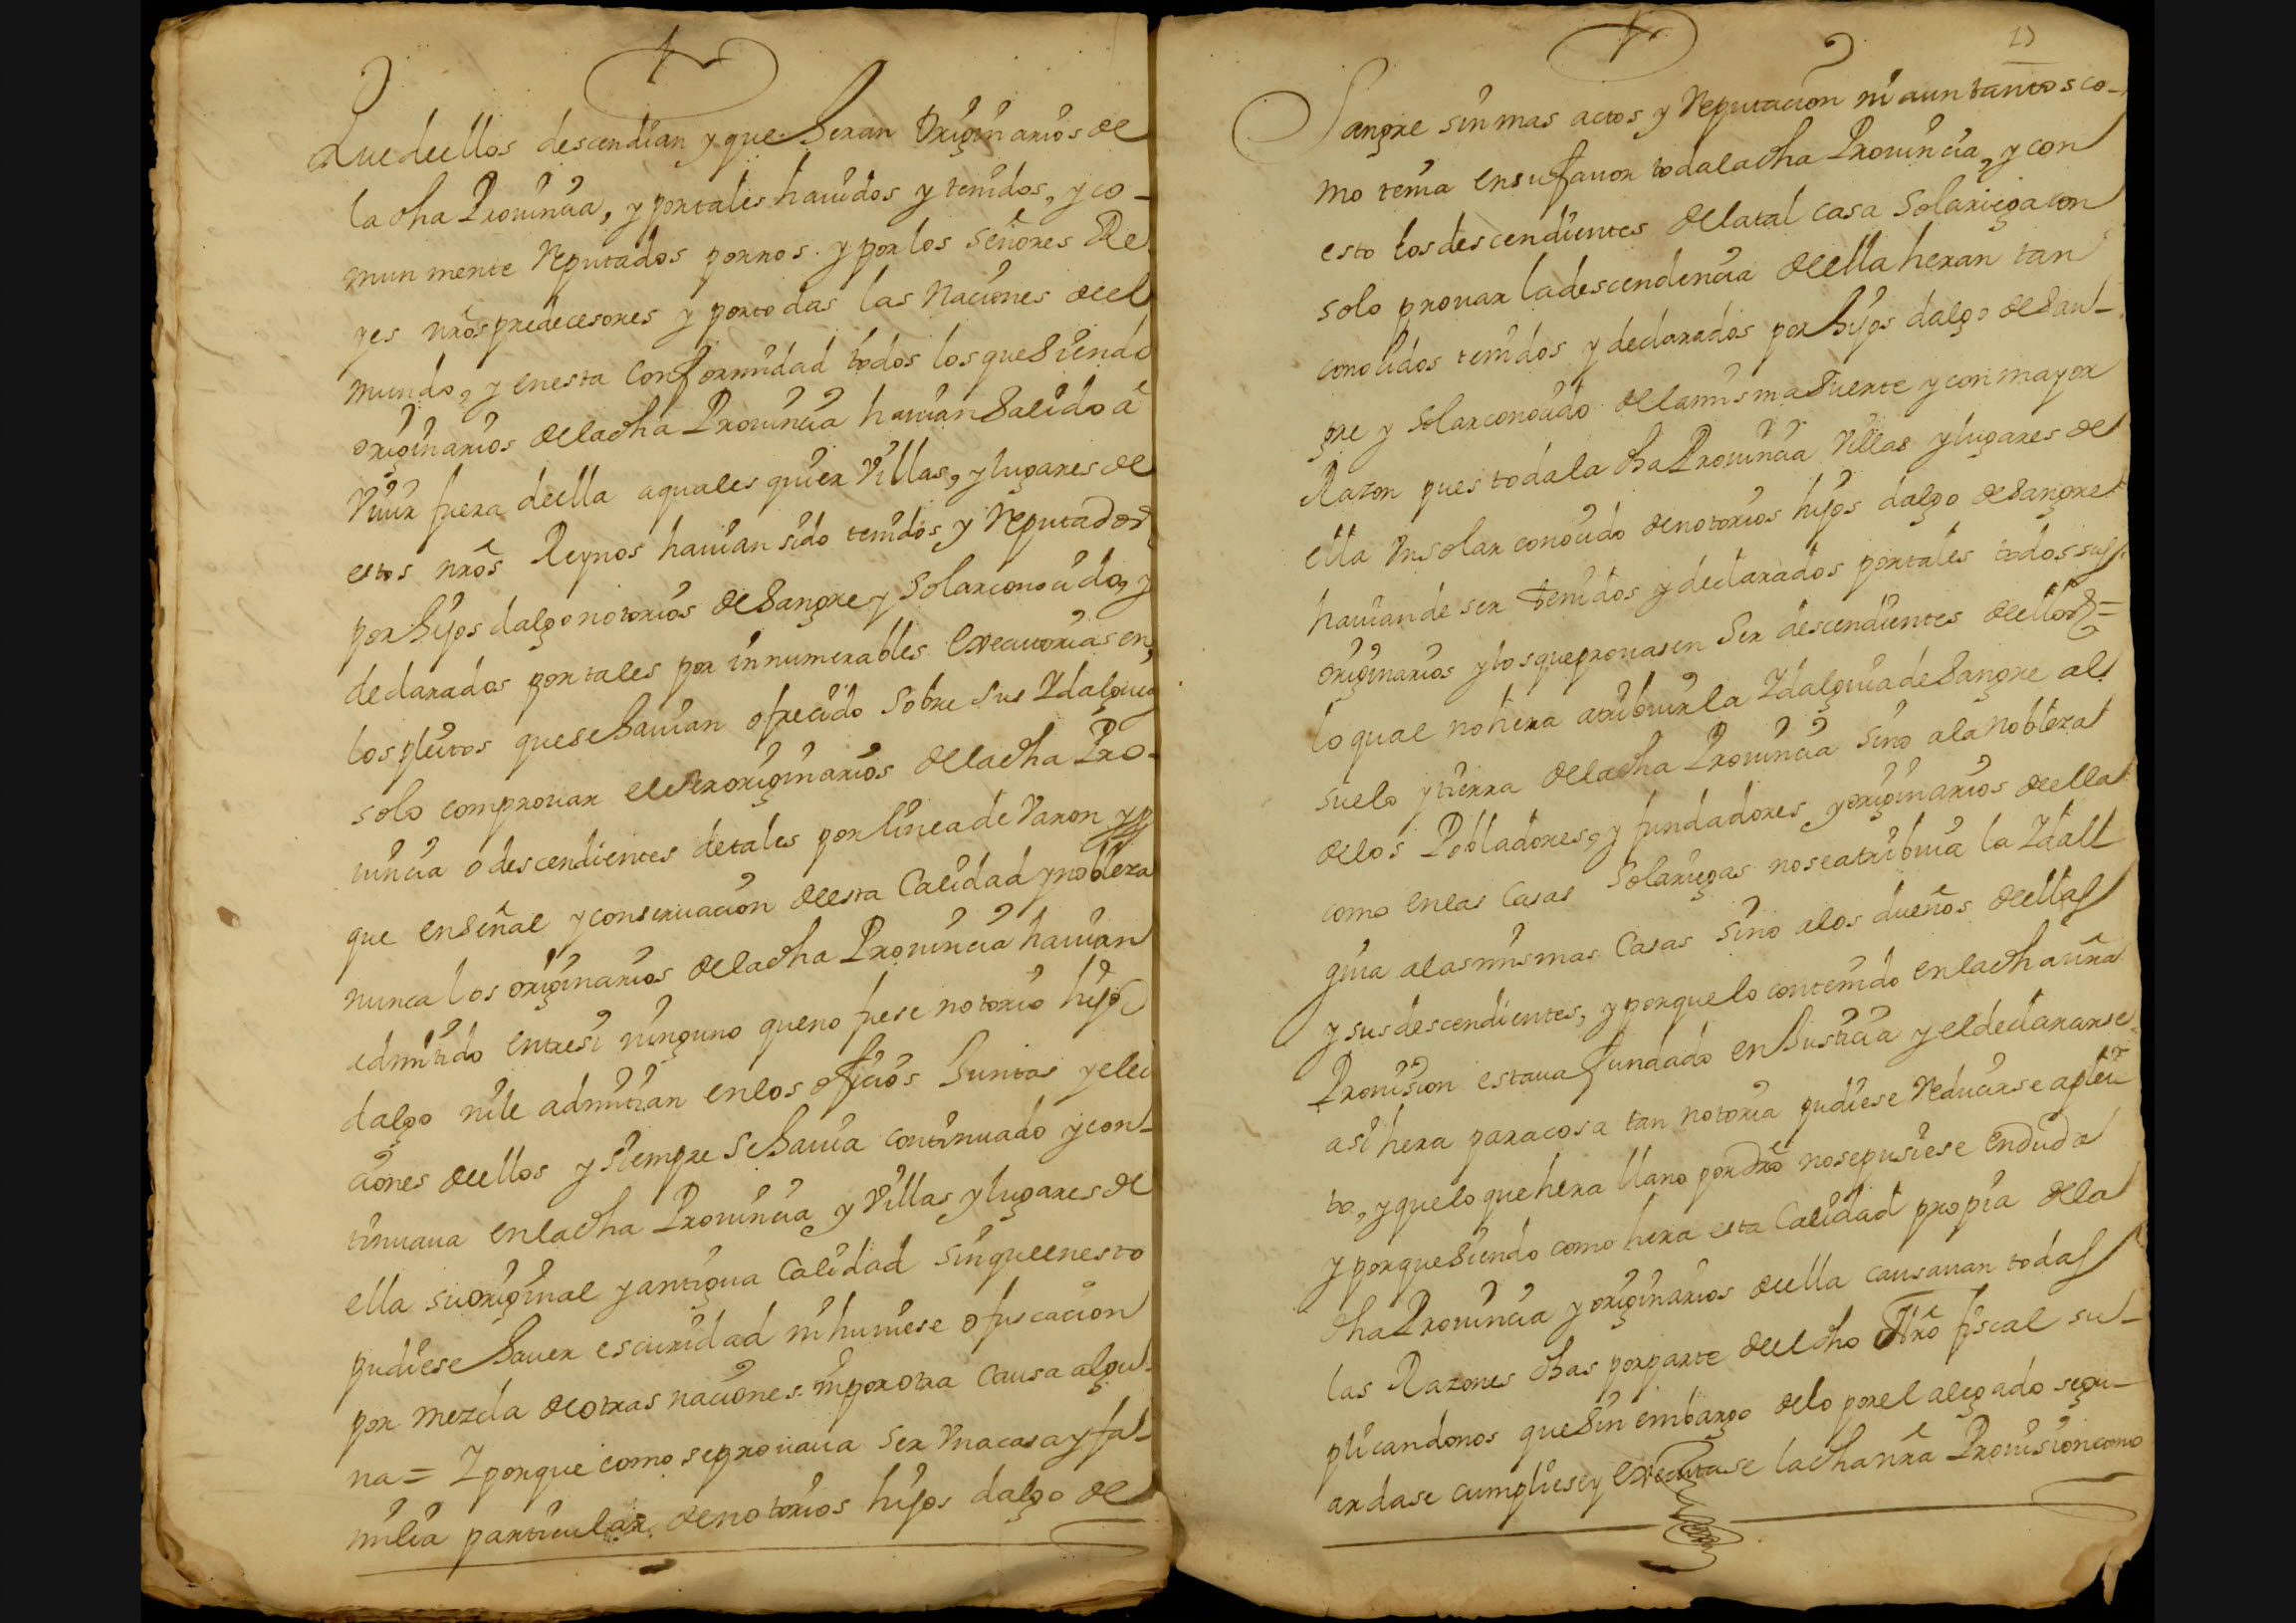 Que dellos descendian y que heran Originarios de
la dha Prouincia, y por tales hauidos y tenidos, y co-
mun mente Reputados por nos. y por los señores Re
yes nrõs predecesores y por todas las Naciones del
mundo, y en esta Conformidad todos los que Siendo
originarios de la dha Prouincia hauian Salido a
Viuir fuera della a quales quier Villas, y lugares de
estos nrõs Reynos hauian sido tenidos y Reputados
por hijos dalgo notorios de Sangre y Solar conocido, y
declarados por tales por innumerables Executorias en
los pleitos que se hauian ofrecido sobre sus Ydalguias
solo comprouar el ser originarios de la dha Pro-
uincia o descendientes de tales por linea de Varon y
que en Señal y conseruacion desta Calidad y nobleza
nunca los originarios de la dha Prouincia hauian
admitido entre si ninguno que no fuese notorio hijo
dalgo ni le admitian en los oficios Juntas y elec
ciones dellos y siempre se hauia continuado y con-
tinuaua en la dha Prouincia y Villas y lugares de
ella su original y antigua Calidad sin que en esto
pudiese hauer escuridad ni huuiese ofuscacion
por mezcla de otras naciones ni por otra Causa algu-
na = Y porque como se prouaua ser Una casa y fa-
milia particular de notorios hijos dalgo de
15
Sangre sin mas actos y Reputacion ni aun tantos co-
mo tenia en su fauor toda la dha Prouincia, y con
esto los descendientes de la tal casa Solariega con
solo prouar la descendencia de ella heran tan
conocidos tenidos y declarados por hijos dalgo de San-
gre y Solar conocido de la misma Suerte y con mayor
Razon pues toda la dha Prouincia Villas y lugares de
ella Un solar conocido de notorios hijos dalgo de Sangre
hauian de ser tenidos y declarados por tales todos sus
originarios y los que prouasen Ser descendientes dellos =
lo qual no hera atribuir la Ydalguia de Sangre al
suelo y tierra de la dha Prouincia sino a la Nobleza
de los Pobladores, y fundadores y originarios de ella
como en las Casas Solariegas no se atribuia la Ydal
guia a las mismas Casas sino a los dueños de ellas
y sus descendientes, y porque lo contenido en la dha nrã
Prouision estaua fundado en Justicia y el declararse
asi hera para cosa tan notoria pudiese Reducirse a plei
to, y que lo que hera llano por drõ no se pusiese en duda
y porque Siendo como hera esta Calidad propia de la
dha Prouincia y originarios de ella causauan todas
las Razones dhas por parte del dho nrõ fiscal su-
plicandonos que Sin embargo de lo por el alegado segu-
ardase cumpliese y executase la dha nrã Prouision como